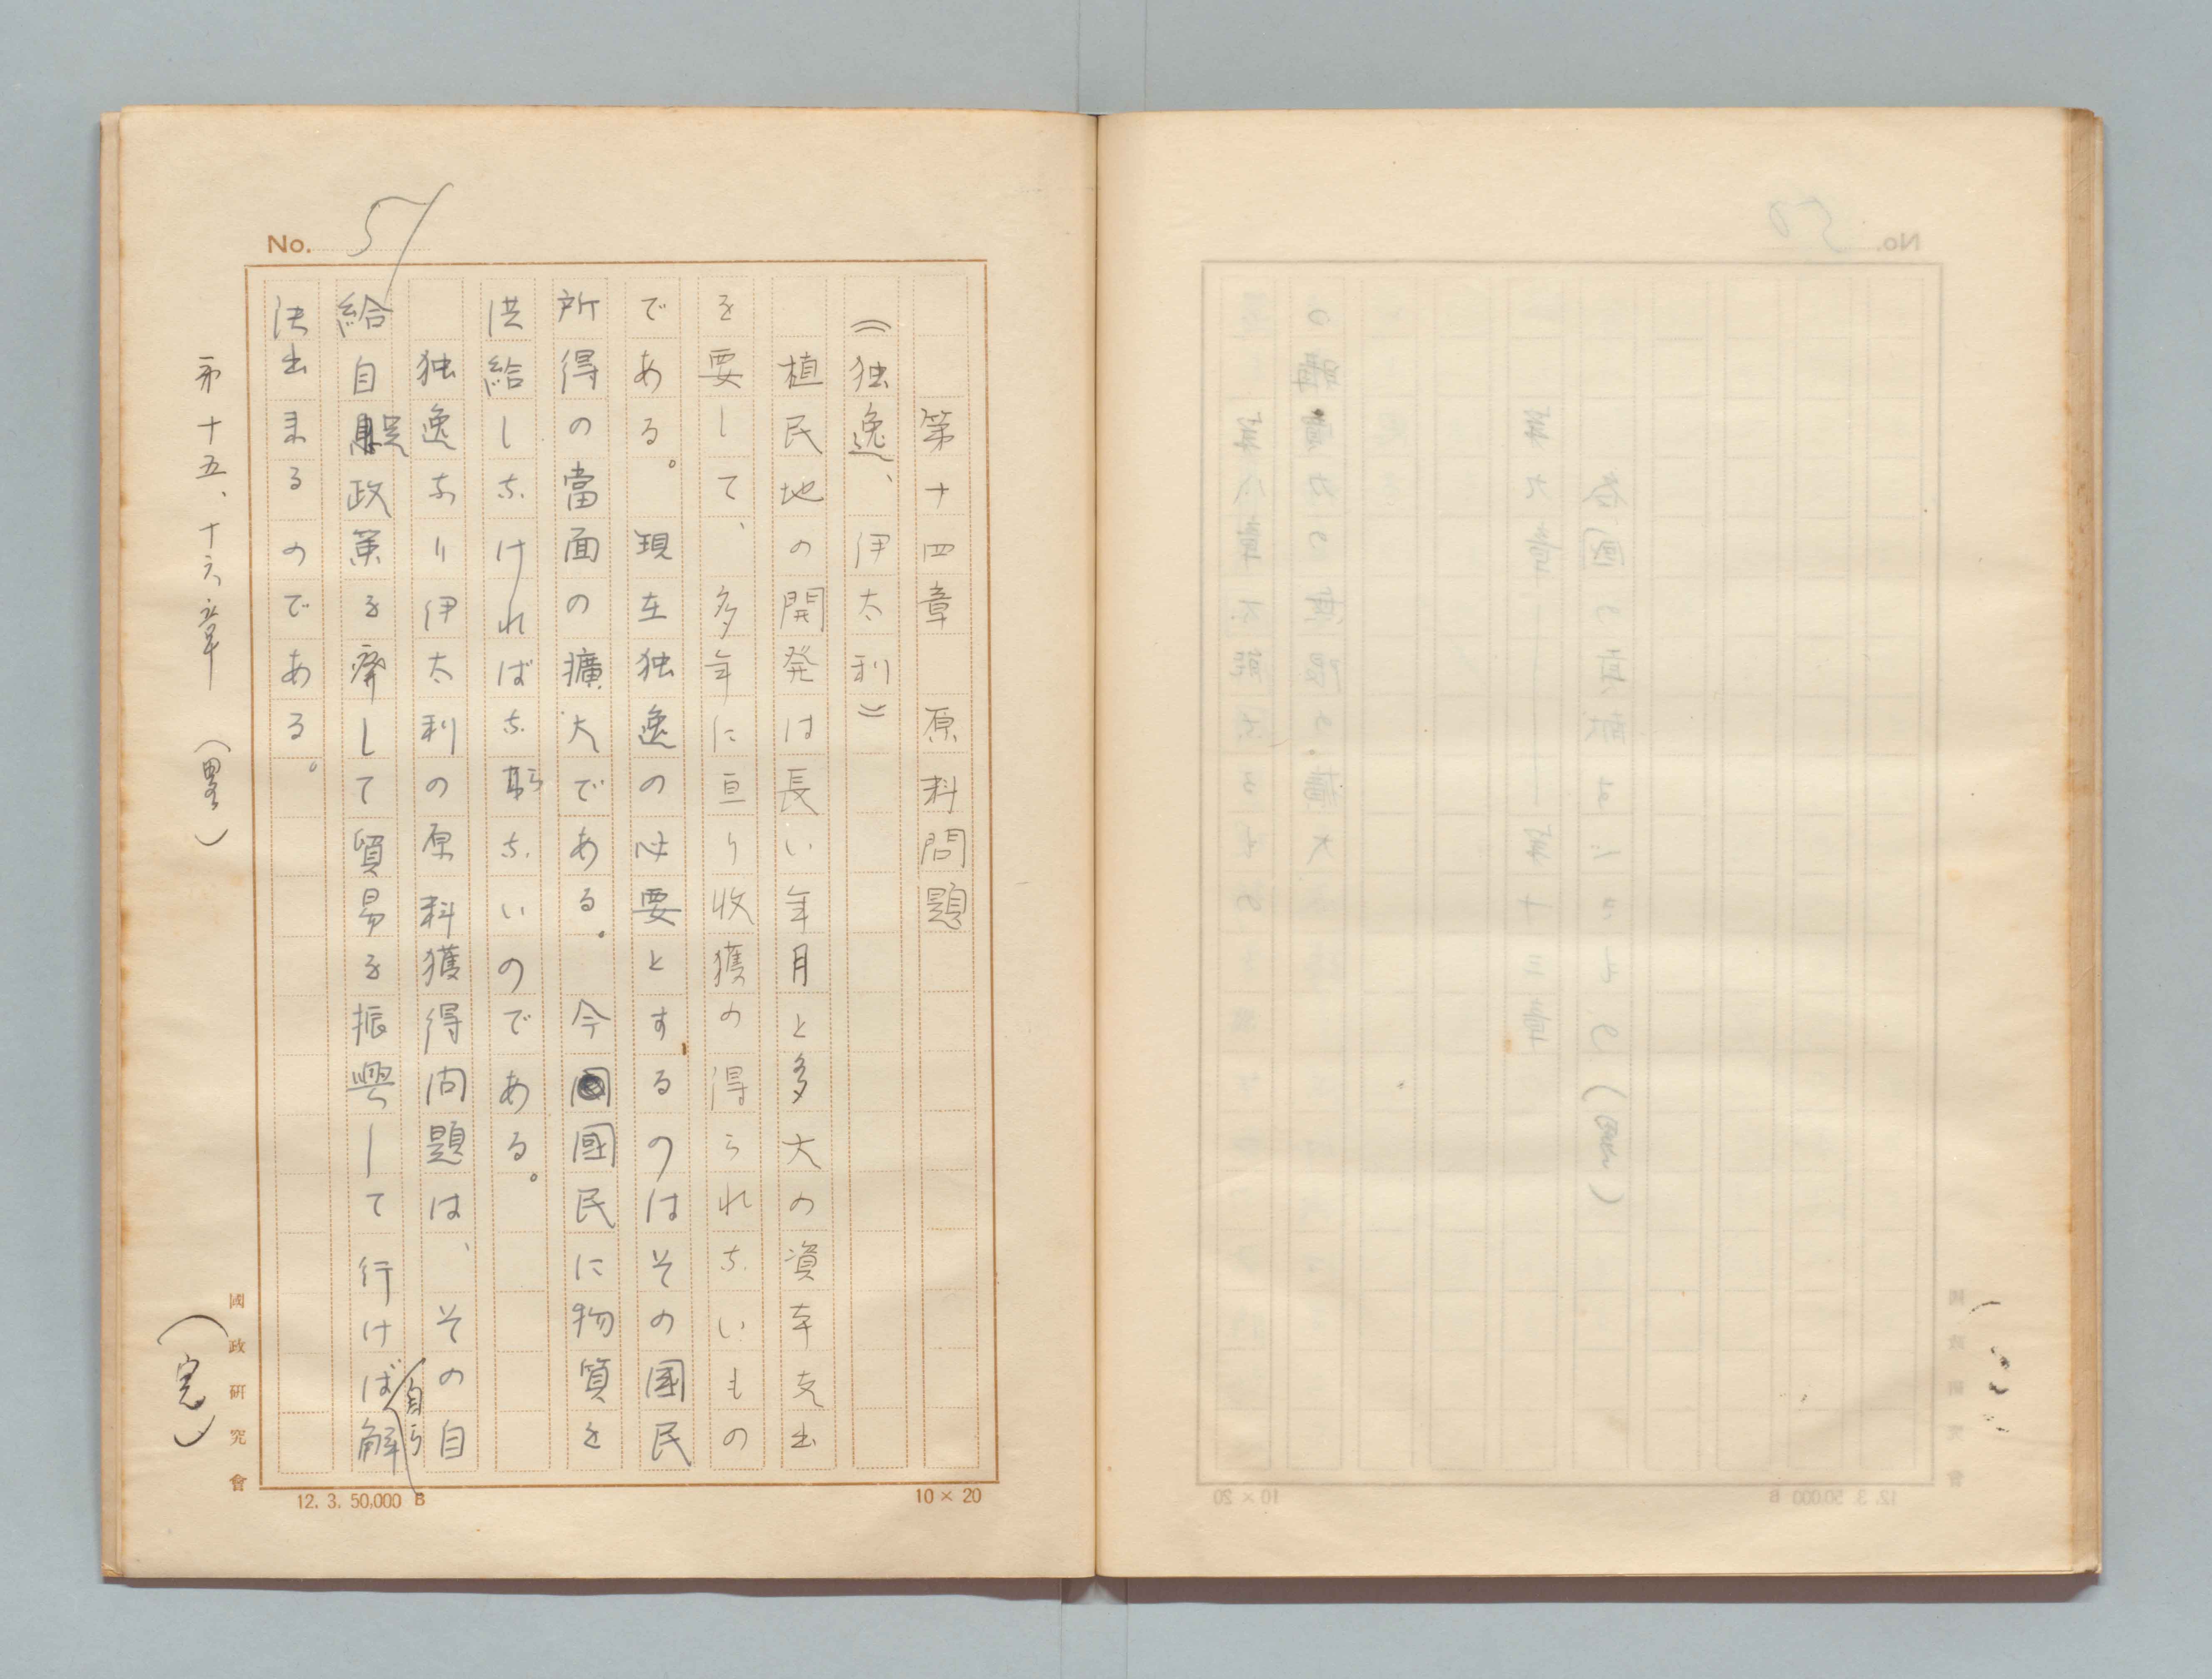 No. 51
第十四章　原料問題
(独逸、伊太利)
植民地の開発は長い年月と多大の資本支出
を要して、多年に亘り收獲の得られないもの
である。現在独逸の必要とするのはその國民
所得の當面の擴大である。今國民に物質を
供給しなければならないのである。
独逸なり伊太利の原料獲得問題は、その自
給自足政策を齊して貿易を振興して行けば自ら解
決出来るのである。
第十五、十六章（畧）
（完）
國政研究會
12. 3. 50,000 B
10 × 20